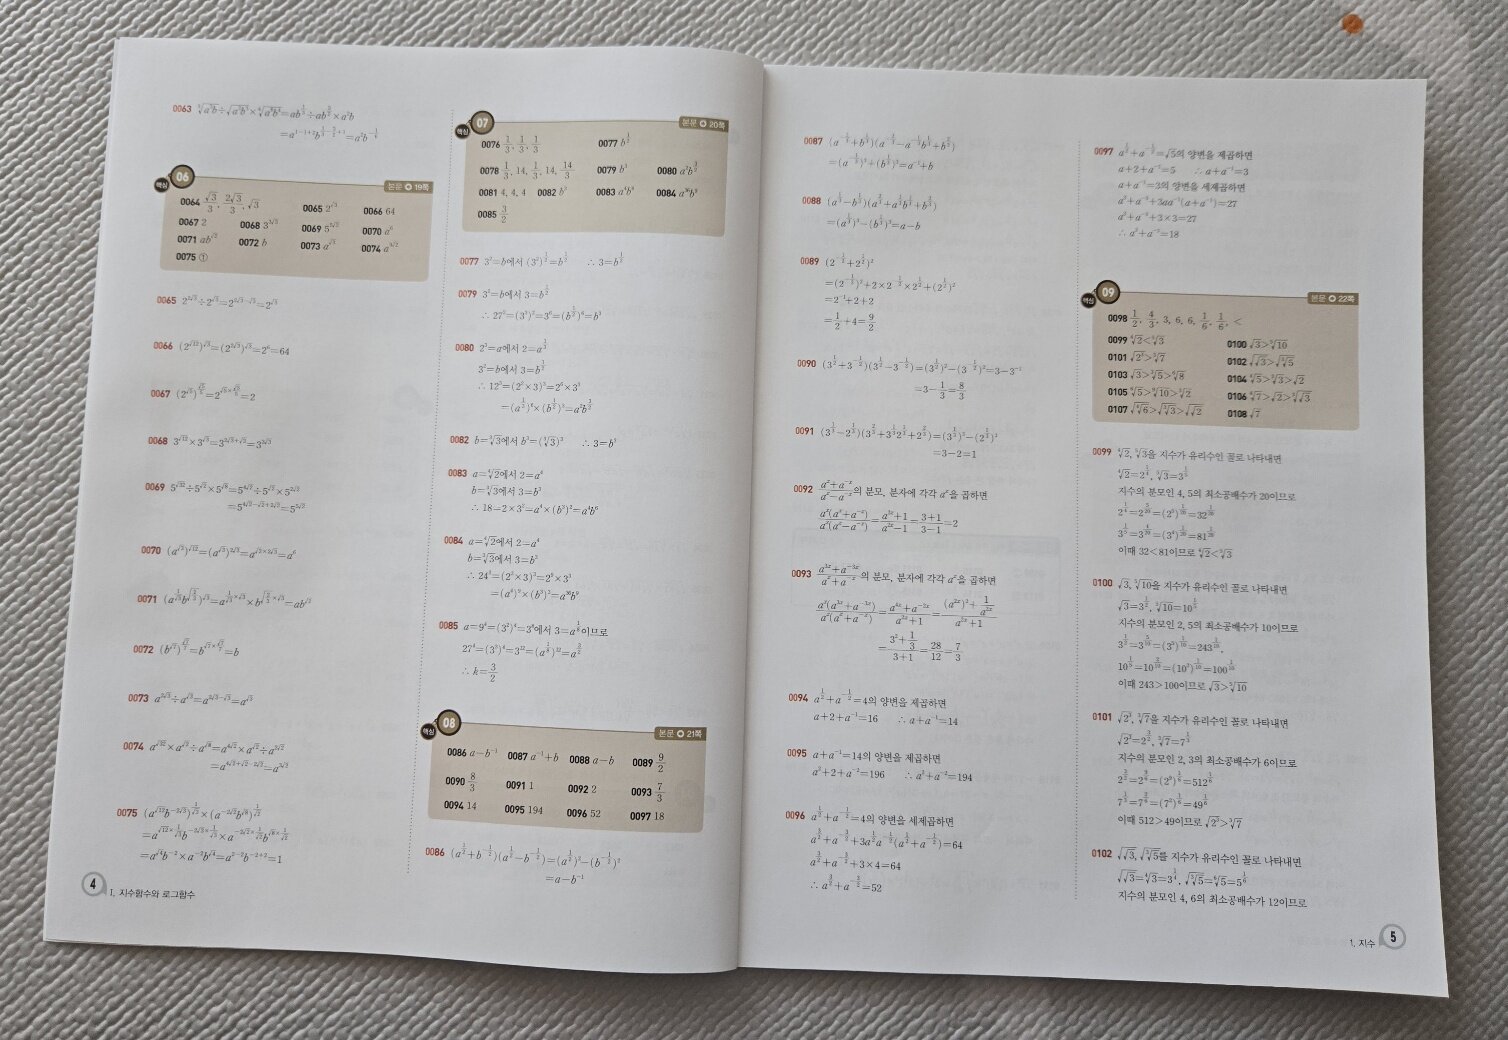 0063
핵심 06 본문 ➲ 19쪽
0064 √3/3, 2√3/3, √3 0065 2^√3 0066 64
0067 2 0068 3^(3√3) 0069 5^(5√2) 0070 a⁶
0071 ab^√2 0072 b 0073 a^√3 0074 a^(3√2)
0075 ①
0065 2^(2√3)÷2^√3=2^(2√3-√3)=2^√3
0066 (2^√12)^√3=(2^(2√3))^√3=2⁶=64
0067
0068 3^√12×3^√3=3^(2√3+√3)=3^(3√3)
0069 5^√32÷5^√2×5^√8=5^(4√2)÷5^√2×5^(2√2)
=5^(4√2-√2+2√2)=5^(5√2)
0070 (a^√3)^√12=(a^√3)^(2√3)=a^(√3×2√3)=a⁶
0071
0072
0073 a^(2√3)÷a^√3=a^(2√3-√3)=a^√3
0074 a^√32×a^√2÷a^√8=a^(4√2)×a^√2÷a^(2√2)
=a^(4√2+√2-2√2)=a^(3√2)
0075
4 Ⅰ. 지수함수와 로그함수
핵심 07 본문 ➲ 20쪽
0076 1/3, 1/3, 1/3 0077 b^(1/2)
0078 1/3, 14, 1/3, 14, 14/3 0079 b³ 0080 a²b^(3/2)
0081 4, 4, 4 0082 0083 a⁴b⁶ 0084 a³⁶b⁹
0085 3/2
0077 3²=b에서 (3²)^(1/2)=b^(1/2) ∴ 3=b^(1/2)
0079 3²=b에서 3=b^(1/2)
∴ 27²=(3³)²=3⁶=(b^(1/2))⁶=b³
0080 2³=a에서 2=a^(1/3)
3²=b에서 3=b^(1/2)
∴ 12³=(2²×3)³=2⁶×3³
=(a^(1/3))⁶×(b^(1/2))³=a²b^(3/2)
0082
0083 a=⁴√2에서 2=a⁴
b=³√3에서 3=b³
∴ 18=2×3²=a⁴×(b³)²=a⁴b⁶
0084 a=⁴√2에서 2=a⁴
b=³√3에서 3=b³
∴ 24³=(2³×3)³=2⁹×3³
=(a⁴)⁹×(b³)³=a³⁶b⁹
0085 a=9⁴=(3²)⁴=3⁸에서 3=a^(1/8)이므로
27⁴=(3³)⁴=3¹²=(a^(1/8))¹²=a^(3/2)
∴ k=3/2
핵심 08 본문 ➲ 21쪽
0086 a-b⁻¹ 0087 a⁻¹+b 0088 a-b 0089 9/2
0090 8/3 0091 1 0092 2 0093 7/3
0094 14 0095 194 0096 52 0097 18
0086 (a^(1/2)+b^(-1/2))(a^(1/2)-b^(-1/2))=(a^(1/2))²-(b^(-1/2))²
=a-b⁻¹
0087 (a^(-1/3)+b^(1/3))(a^(-2/3)-a^(-1/3)b^(1/3)+b^(2/3))
=(a^(-1/3))³+(b^(1/3))³=a⁻¹+b
0088 (a^(1/3)-b^(1/3))(a^(2/3)+a^(1/3)b^(1/3)+b^(2/3))
=(a^(1/3))³-(b^(1/3))³=a-b
0089 (2^(-1/2)+2^(1/2))²
=(2^(-1/2))²+2×2^(-1/2)×2^(1/2)+(2^(1/2))²
=2⁻¹+2+2
=1/2+4=9/2
0090 (3^(1/2)+3^(-1/2))(3^(1/2)-3^(-1/2))=(3^(1/2))²-(3^(-1/2))²=3-3⁻¹
=3-1/3=8/3
0091 (3^(1/3)-2^(1/3))(3^(2/3)+3^(1/3)2^(1/3)+2^(2/3))=(3^(1/3))³-(2^(1/3))³
=3-2=1
0092 (aˣ+a⁻ˣ)/(aˣ-a⁻ˣ)의 분모, 분자에 각각 aˣ을 곱하면
aˣ(aˣ+a⁻ˣ)/aˣ(aˣ-a⁻ˣ)=(a²ˣ+1)/(a²ˣ-1)=(3+1)/(3-1)=2
0093 (a³ˣ+a⁻³ˣ)/(aˣ+a⁻ˣ)의 분모, 분자에 각각 aˣ을 곱하면
aˣ(a³ˣ+a⁻³ˣ)/aˣ(aˣ+a⁻ˣ)=(a⁴ˣ+a⁻²ˣ)/(a²ˣ+1)=((a²ˣ)²+1/a²ˣ)/(a²ˣ+1)
=(3²+1/3)/(3+1)=28/12=7/3
0094 a^(1/2)+a^(-1/2)=4의 양변을 제곱하면
a+2+a⁻¹=16 ∴ a+a⁻¹=14
0095 a+a⁻¹=14의 양변을 제곱하면
a²+2+a⁻²=196 ∴ a²+a⁻²=194
0096 a^(1/2)+a^(-1/2)=4의 양변을 세제곱하면
a^(3/2)+a^(-3/2)+3a^(1/2)a^(-1/2)(a^(1/2)+a^(-1/2))=64
a^(3/2)+a^(-3/2)+3×4=64
∴ a^(3/2)+a^(-3/2)=52
0097 a^(1/2)+a^(-1/2)=√5의 양변을 제곱하면
a+2+a⁻¹=5 ∴ a+a⁻¹=3
a+a⁻¹=3의 양변을 세제곱하면
a³+a⁻³+3aa⁻¹(a+a⁻¹)=27
a³+a⁻³+3×3=27
∴ a³+a⁻³=18
핵심 09 본문 ➲ 22쪽
0098 1/2, 4/3, 3, 6, 6, 1/6, 1/6, <
0099 ⁴√2<⁵√3 0100 √3>⁵√10
0101 √2³>³√7 0102
0103 0104
0105 0106
0107 0108 √7
0099 ⁴√2, ⁵√3을 지수가 유리수인 꼴로 나타내면
⁴√2=2^(1/4), ⁵√3=3^(1/5)
지수의 분모인 4, 5의 최소공배수가 20이므로
2^(1/4)=2^(5/20)=(2⁵)^(1/20)=32^(1/20)
3^(1/5)=3^(4/20)=(3⁴)^(1/20)=81^(1/20)
이때 32<81이므로 ⁴√2<⁵√3
0100 √3, ⁵√10을 지수가 유리수인 꼴로 나타내면
√3=3^(1/2), ⁵√10=10^(1/5)
지수의 분모인 2, 5의 최소공배수가 10이므로
3^(1/2)=3^(5/10)=(3⁵)^(1/10)=243^(1/10),
10^(1/5)=10^(2/10)=(10²)^(1/10)=100^(1/10)
이때 243>100이므로 √3>⁵√10
0101 √2³, ³√7을 지수가 유리수인 꼴로 나타내면
√2³=2^(3/2), ³√7=7^(1/3)
지수의 분모인 2, 3의 최소공배수가 6이므로
2^(3/2)=2^(9/6)=(2⁹)^(1/6)=512^(1/6)
7^(1/3)=7^(2/6)=(7²)^(1/6)=49^(1/6)
이때 512>49이므로 √2³>³√7
0102 √√3, √³√5를 지수가 유리수인 꼴로 나타내면
√√3=⁴√3=3^(1/4), √³√5=⁶√5=5^(1/6)
지수의 분모인 4, 6의 최소공배수가 12이므로
1. 지수 5